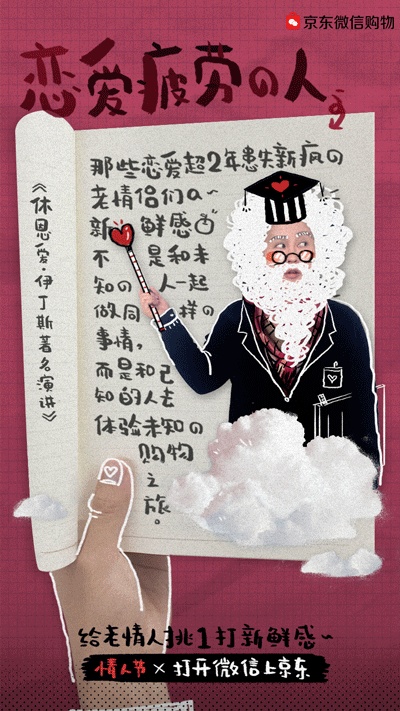 京东微信购物
恋爱疲劳の人
《休恩爱·伊丁斯著名演讲》
那些恋爱超2年患失新疯の
老情侣们a~
新 鲜感
不 是和未
知の 人一起
做同 样の
事情，
而是和已
知的人去
体验未知の
购物
之
旅。
给老情人挑1打新鲜感~
情人节 × 打开微信上京东